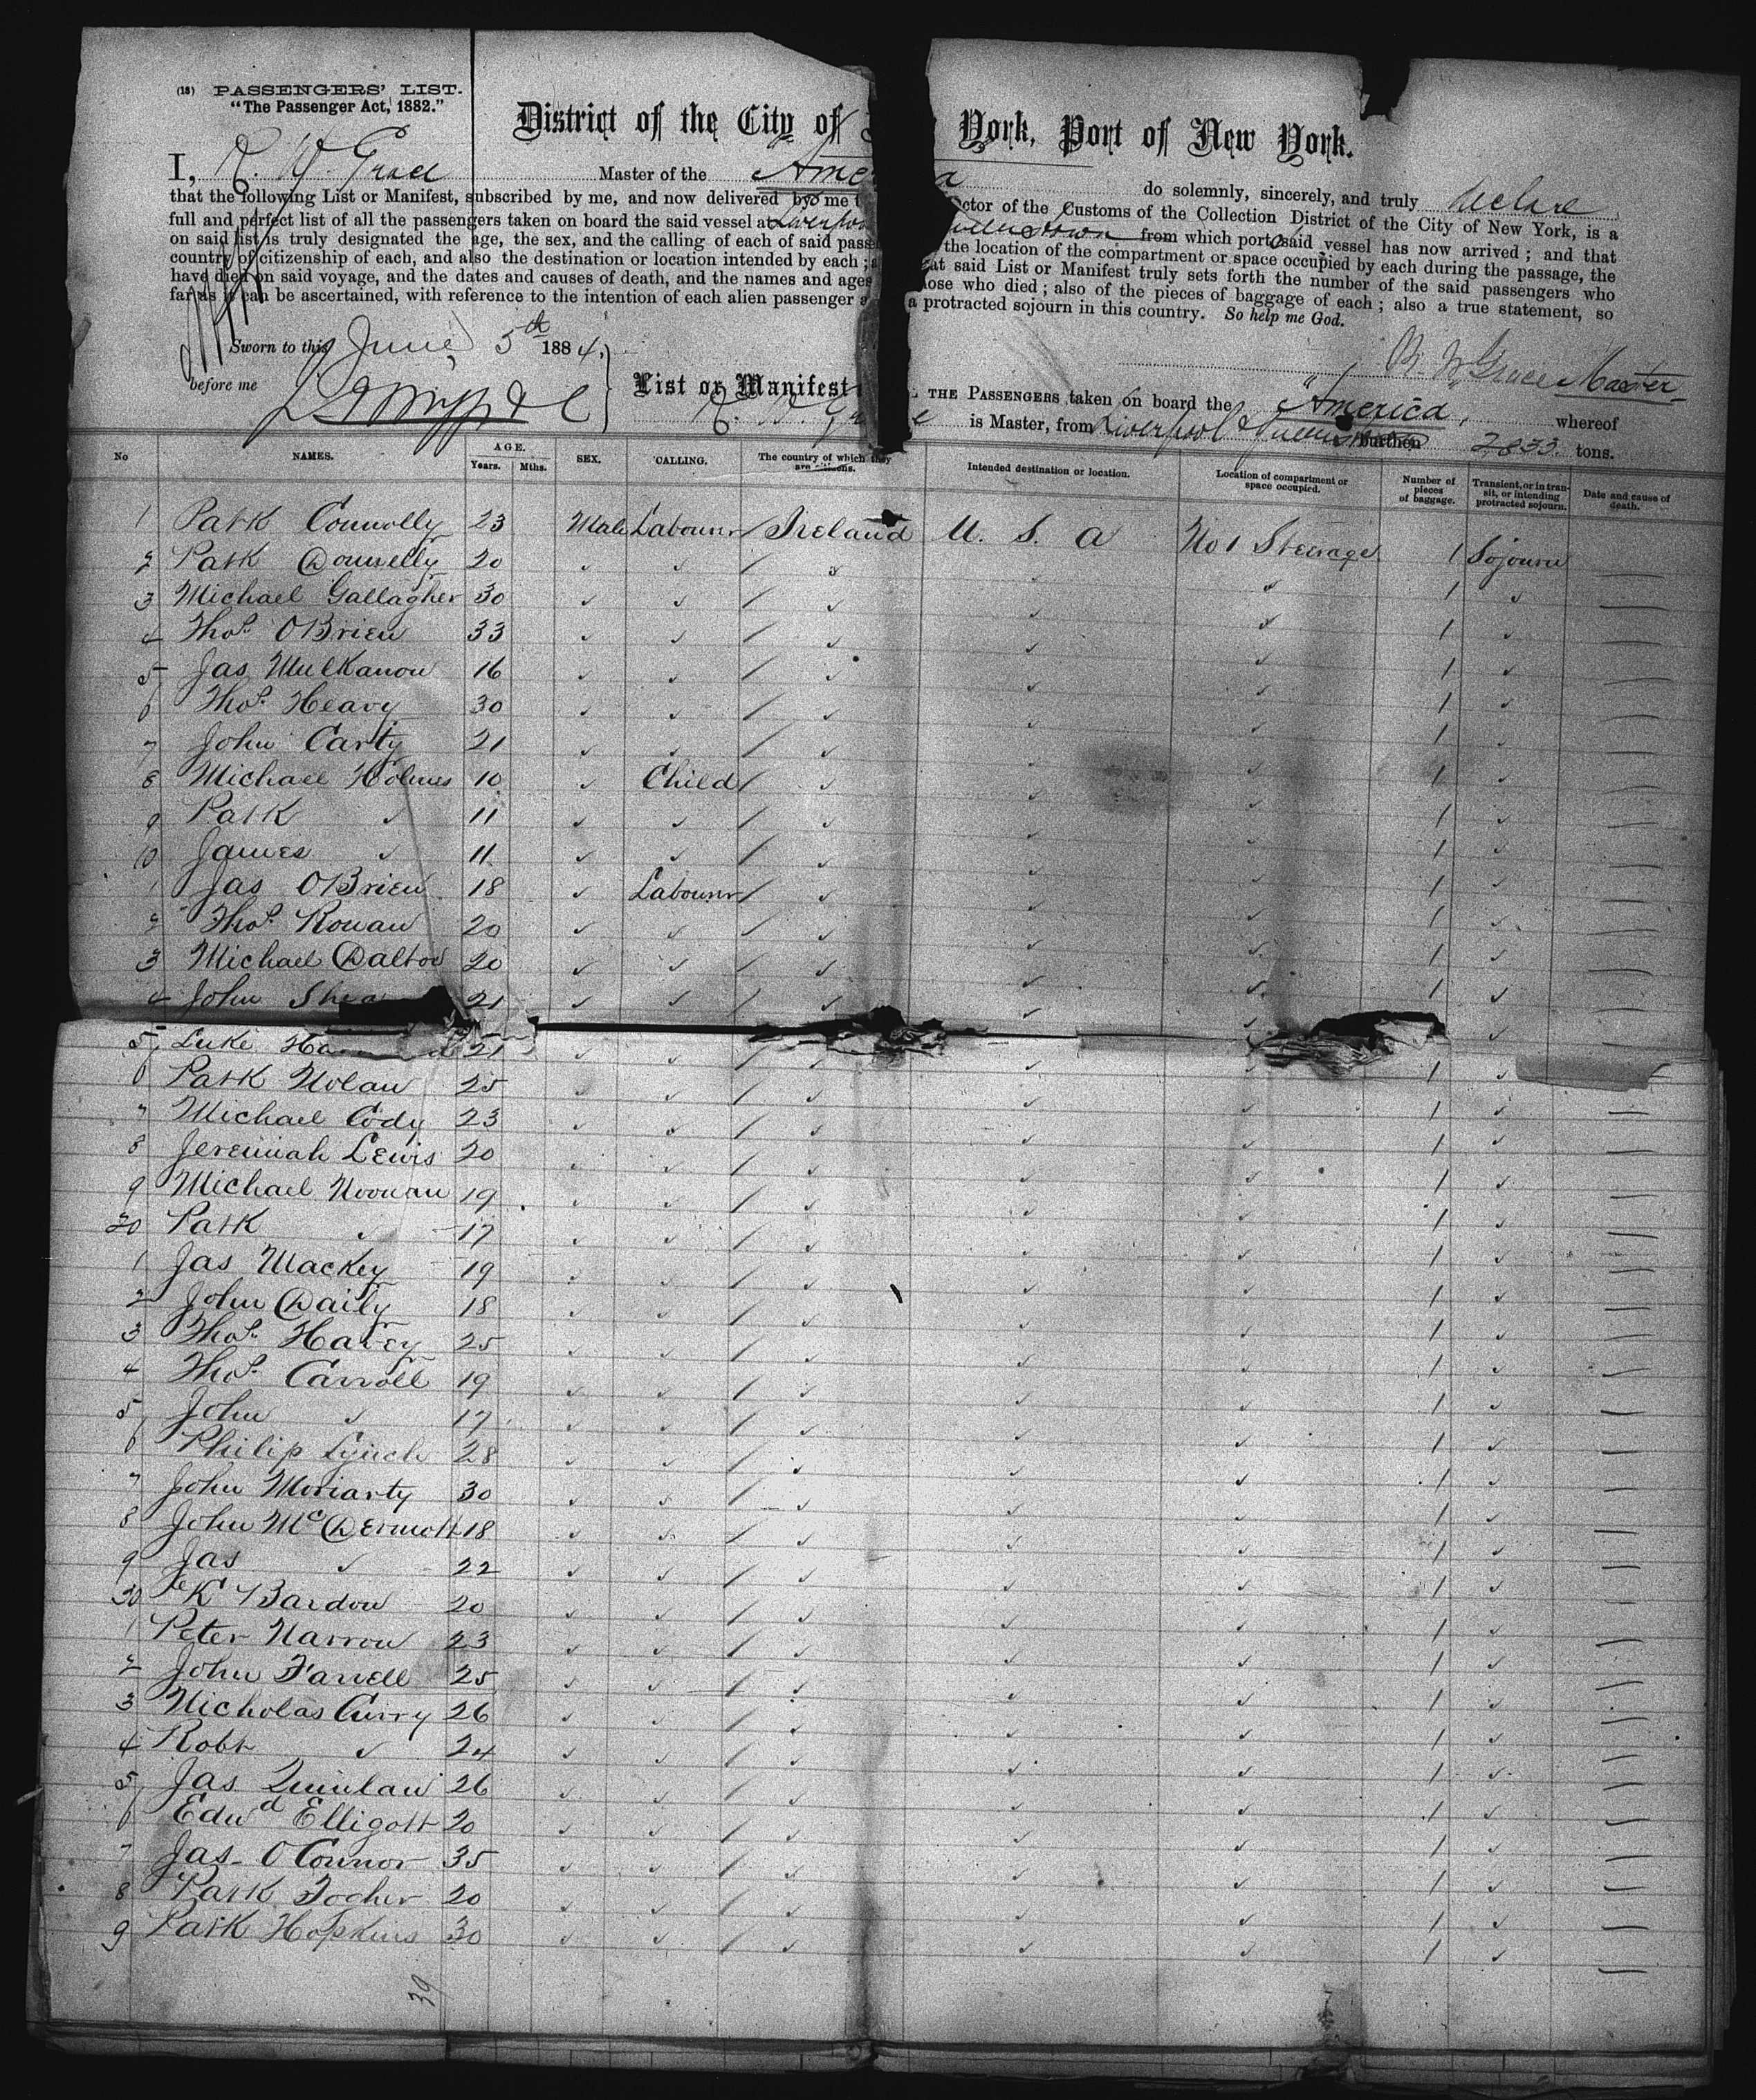 (18) PASSENGERS' LIST.
"The Passenger Act, 1882."
District of the City of York, Port of New York.
I, R. W. Grace Master of the America do solemnly, sincerely, and truly declare
that the following List or Manifest, subscribed by me, and now delivered by me ctor of the Customs of the Collection District of the City of New York, is a
full and perfect list of all the passengers taken on board the said vessel at Liverpool Queenstown from which port said vessel has now arrived; and that
on said list is truly designated the age, the sex, and the calling of each of said pass the location of the compartment or space occupied by each during the passage, the
country of citizenship of each, and also the destination or location intended by each; at said List or Manifest truly sets forth the number of the said passengers who
have died on said voyage, and the dates and causes of death, and the names and ages ose who died; also of the pieces of baggage of each; also a true statement, so
far as it can be ascertained, with reference to the intention of each alien passenger a protracted sojourn in this country. So help me God.
Sworn to this June 5th 1884,
R. W. Grace Master
before me
List or Manifest THE PASSENGERS taken on board the America, whereof
R. W. Grace is Master, from Liverpool & Queenstown burthen 2833 tons.
No NAMES. AGE. Years. Mths. SEX. CALLING. The country of which they are citizens. Intended destination or location. Location of compartment or space occupied. Number of pieces of baggage. Transient, or in transit, or intending protracted sojourn. Date and cause of death.
1 Patk Connolly 23 Male Labourer / Ireland U. S. A No 1 Steerage 1 Sojourn —
2 Patk Donnelly 20 ✓ ✓ / ✓ ✓ ✓ 1 ✓ —
3 Michael Gallagher 30 ✓ ✓ / ✓ ✓ ✓ 1 ✓ —
4 Thos. OBrien 33 ✓ ✓ / ✓ ✓ ✓ 1 ✓ —
5 Jas Mulkanon 16 ✓ ✓ / ✓ ✓ ✓ 1 ✓ —
6 Thos. Heavy 30 ✓ ✓ / ✓ ✓ ✓ 1 ✓ —
7 John Carty 21 ✓ ✓ / ✓ ✓ ✓ 1 ✓ —
8 Michael Holmes 10 ✓ Child / ✓ ✓ ✓ 1 ✓ —
9 Patk ✓ 11 ✓ ✓ / ✓ ✓ ✓ 1 ✓ —
10 James ✓ 11 ✓ ✓ / ✓ ✓ ✓ 1 ✓ —
1 Jas OBrien 18 ✓ Labourer / ✓ ✓ ✓ 1 ✓ —
2 Thos. Rowan 20 ✓ ✓ / ✓ ✓ ✓ 1 ✓ —
3 Michael Dalton 20 ✓ ✓ / ✓ ✓ ✓ 1 ✓ —
4 John Shea 21 ✓ ✓ / ✓ ✓ ✓ ✓
5 Luke 21 ✓ ✓ / ✓ ✓ 1 ✓ —
6 Patk Nolan 25 ✓ ✓ / ✓ ✓ ✓ 1 ✓ —
7 Michael Cody 23 ✓ ✓ / ✓ ✓ ✓ 1 ✓ —
8 Jeremiah Lewis 20 ✓ ✓ / ✓ ✓ ✓ 1 ✓ —
9 Michael Noonan 19 ✓ ✓ / ✓ ✓ ✓ 1 ✓ —
20 Patk ✓ 17 ✓ ✓ / ✓ ✓ ✓ 1 ✓ —
1 Jas Mackey 19 ✓ ✓ / ✓ ✓ ✓ 1 ✓ —
2 John Daily 18 ✓ ✓ / ✓ ✓ ✓ 1 ✓ —
3 Thos. Harey 25 ✓ ✓ / ✓ ✓ ✓ 1 ✓ —
4 Thos. Carroll 19 ✓ ✓ / ✓ ✓ ✓ 1 ✓ —
5 John ✓ 17 ✓ ✓ / ✓ ✓ ✓ 1 ✓ —
6 Philip Lynch 28 ✓ ✓ / ✓ ✓ ✓ 1 ✓ —
7 John Moriarty 30 ✓ ✓ / ✓ ✓ ✓ 1 ✓ —
8 John McDermott 18 ✓ ✓ / ✓ ✓ ✓ 1 ✓ —
9 Jas ✓ 22 ✓ ✓ / ✓ ✓ ✓ 1 ✓ —
30 Bardon 20 ✓ ✓ / ✓ ✓ ✓ 1 ✓ —
1 Peter Narron 23 ✓ ✓ / ✓ ✓ ✓ 1 ✓ —
2 John Farrell 25 ✓ ✓ / ✓ ✓ ✓ 1 ✓ —
3 Nicholas Curry 26 ✓ ✓ / ✓ ✓ ✓ 1 ✓ —
4 Robt ✓ 24 ✓ ✓ / ✓ ✓ ✓ 1 ✓ —
5 Jas Quinlan 26 ✓ ✓ / ✓ ✓ ✓ 1 ✓ —
6 Edwd Elligott 20 ✓ ✓ / ✓ ✓ ✓ 1 ✓ —
7 Jas OConnor 35 ✓ ✓ / ✓ ✓ ✓ 1 ✓ —
8 Patk Togher 20 ✓ ✓ / ✓ ✓ ✓ 1 ✓ —
9 Patk Hopkins 30 ✓ ✓ / ✓ ✓ ✓ 1 ✓ —
39